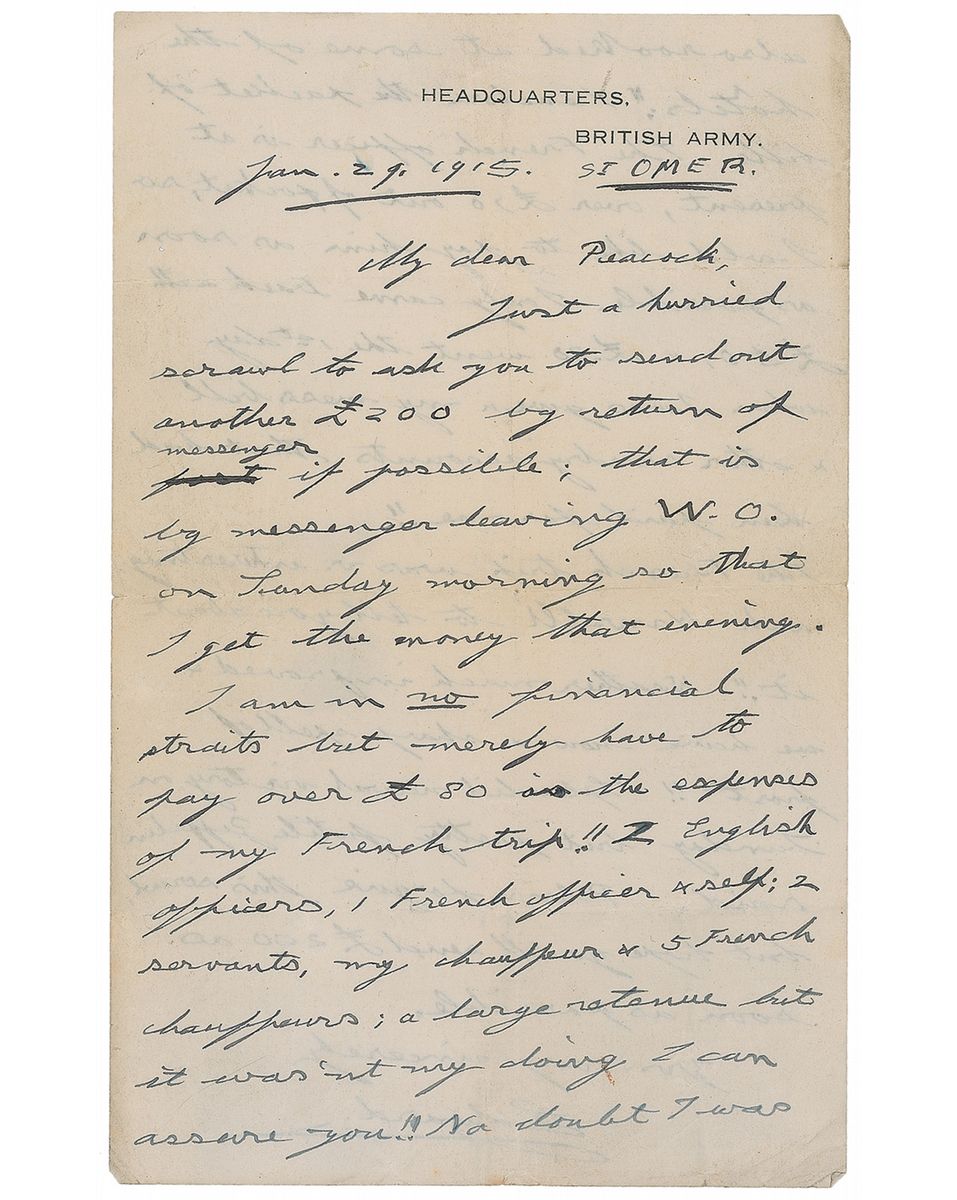 HEADQUARTERS,
BRITISH ARMY.
Jan. 29. 1915. ST OMER.
My dear Peacock,
Just a hurried
scrawl to ask you to send out
another £200 by return of
messenger
post if possible; that is
by messenger leaving W.O.
on Sunday morning so that
I get the money that evening.
I am in no financial
straits but merely have to
pay over £80 as the expenses
of my French trip!! 2 English
officers, 1 French officer & self; 2
servants, my chauffeur & 5 French
chauffeurs; a large retenue but
it was'nt my doing I can
assure you!! No doubt I was